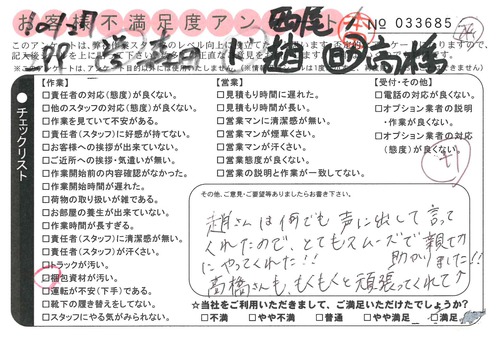 お客様不満足度アンケート
西尾
No 033685
趙 高橋
チェックリスト
【作業】
□責任者の対応(態度)が良くない。
□他のスタッフの対応(態度)が良くない。
□作業を見ていて不安がある。
□責任者(スタッフ)に好感が持てない。
□お客様への挨拶が出来ていない。
□ご近所への挨拶・気遣いが無い。
□作業開始前の内容確認がなかった。
□作業開始時間が遅れた。
□荷物の取り扱いが雑である。
□お部屋の養生が出来ていない。
□作業時間が長すぎる。
□責任者(スタッフ)に清潔感が無い。
□責任者(スタッフ)が汗くさい。
□トラックが汚い。
□梱包資材が汚い。
□運転が不安(下手)である。
□靴下の履き替えをしてない。
□スタッフにやる気がみられない。
【営業】
□見積もり時間に遅れた。
□見積もり時間が長い。
□営業マンに清潔感が無い。
□営業マンが煙草くさい。
□営業マンが汗くさい。
□営業態度が良くない。
□営業の説明と作業が一致してない。
【受付・その他】
□電話の対応が良くない。
□オプション業者の説明
・作業が良くない。
□オプション業者の対応
(態度)が良くない。
その他、ご意見・ご要望等ありましたらお書き下さい。
趙さんは何でも声に出して言って
くれたので、とてもスムーズで親切
にやってくれた!! 助かりました!!
高橋さんも、もくもくと頑張ってくれて
☆当社をご利用いただきまして、ご満足いただけたでしょうか?
□不満 □やや不満 □普通 □やや満足 □満足